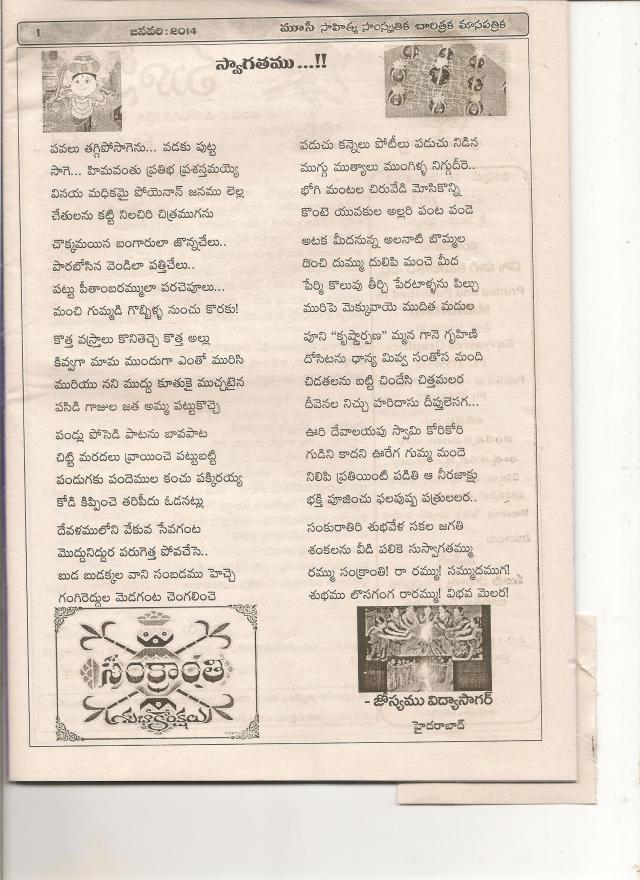 1
జనవరి : 2014
మూసీ సాహిత్య సాంస్కృతిక చారిత్రక మాసపత్రిక
స్వాగతము...!!
పవలు తగ్గిపోసాగెను... వడకు పుట్ట
సాగె... హిమవంతు ప్రతిభ ప్రశస్తమయ్యె
వినయ మధికమై పోయెనాన్ జనము లెల్ల
చేతులను కట్టి నిలచిరి చిత్రముగను
చొక్కమయిన బంగారులా జొన్నచేలు..
పారబోసిన వెండిలా పత్తిచేలు..
పట్టు పీతాంబరమ్ములా పరచెపూలు...
మంచి గుమ్మడి గొబ్బిళ్ళ నుంచు కొరకు!
కొత్త వస్త్రాలు కొనితెచ్చె కొత్త అల్లు
కివ్వగా మామ ముందుగా ఎంతో మురిసి
మురియు నని ముద్దు కూతుకై ముచ్చటైన
పసిడి గాజుల జత అమ్మ పట్టుకొచ్చె
పండ్లు పోసెడి పాటను బావపాట
చిట్టి మరదలు వ్రాయించె పట్టుబట్టి
పండుగకు పందెముల కంచు పక్కిరయ్య
కోడి కిప్పించె తరిపీదు ఓడనట్లు
దేవళములోని వేకువ సేవగంట
మొద్దునిద్దుర పరుగెత్త పోవచేసె..
బుడ బుడక్కల వాని సంబడము హెచ్చె
గంగిరెద్దుల మెడగంట చెంగలించె
పడుచు కన్నెలు పోటీలు పడుచు నిడిన
ముగ్గు ముత్యాలు ముంగిళ్ళ నిగ్గుదీరె..
భోగి మంటల చిరువేడి మోసికొన్ని
కొంటె యువకుల అల్లరి పంట పండె
అటక మీదనున్న అలనాటి బొమ్మల
డించి దుమ్ము దులిపి మంచె మీద
పేర్మి కొలువు తీర్చి పేరటాళ్ళను పిల్చు
మురిపె మెక్కువాయె ముదిత మదుల
పూని "కృష్ణార్పణ" మ్మన గానె గృహిణి
దోసిటను ధాన్య మివ్వ సంతోస మంది
చిడతలను బట్టి చిందేసి చిత్తమలర
దీవెనల నిచ్చు హరిదాసు దీప్తులెసగ...
ఊరి దేవాలయపు స్వామి కోరికోరి
గుడిని కాదని ఊరేగ గుమ్మ మందె
నిలిపి ప్రతియింటి పడితి ఆ నీరజాక్షు
భక్తి పూజించు ఫలపుష్ప పత్రులలర..
సంకురాతిరి శుభవేళ సకల జగతి
శంకలను వీడి పలికె సుస్వాగతమ్ము
రమ్ము సంక్రాంతి! రా రమ్ము! సమ్ముదముగ!
శుభము లొసగంగ రారమ్ము! విభవ మెలర!
సంక్రాంతి
శుభాకాంక్షలు
- జోస్యము విద్యాసాగర్
హైదరాబాద్